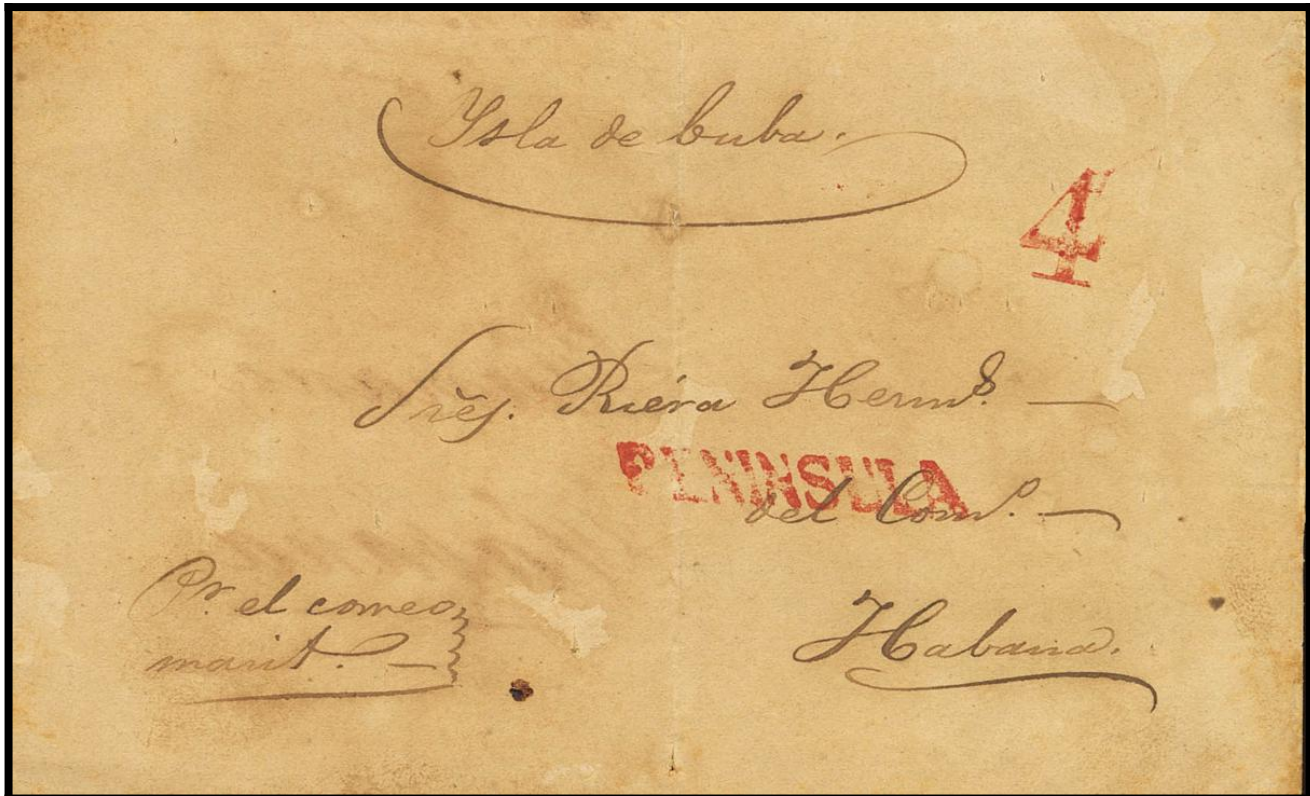 Ysla de Cuba.
4
Sres. Riera Herms. —
PENINSULA
del Como. —
Habana.
Pr. el correo
marit. —